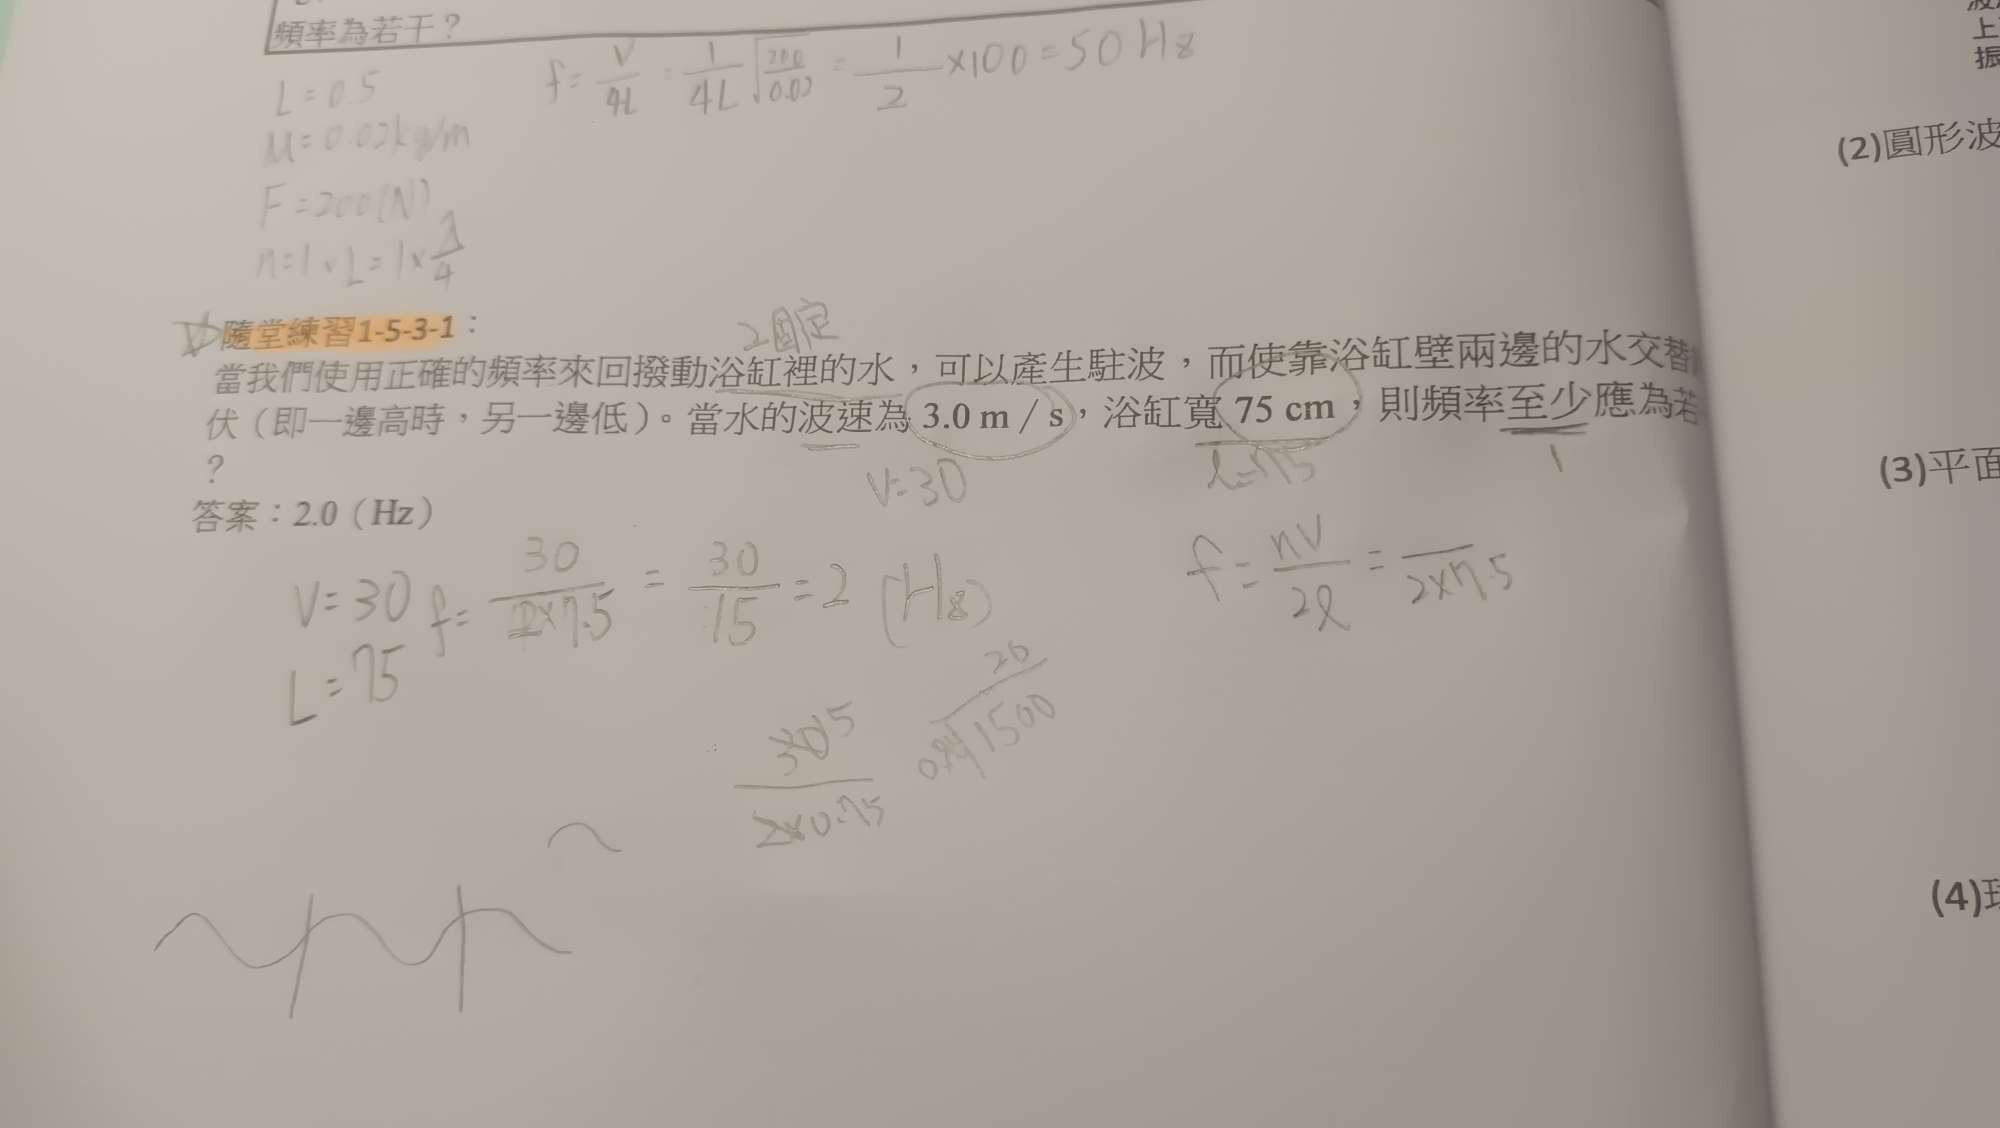 頻率為若干？
L=0.5
f=V/4L=1/4L√200/0.02=1/2×100=50Hz
M=0.02kg/m
F=200(N)
n=1，L=1×λ/4
隨堂練習1-5-3-1：
2固定
當我們使用正確的頻率來回撥動浴缸裡的水，可以產生駐波，而使靠浴缸壁兩邊的水交替
伏（即一邊高時，另一邊低）。當水的波速為 3.0 m / s，浴缸寬 75 cm，則頻率至少應為若
？
V=30
l=75
1
答案：2.0（Hz）
V=30
f=30/2×7.5=30/15=2(Hz)
f=nV/2l=/2×7.5
L=75
30 15
2×0.75
20
1500
波
上
振
(2)圓形波
(3)平面
(4)球